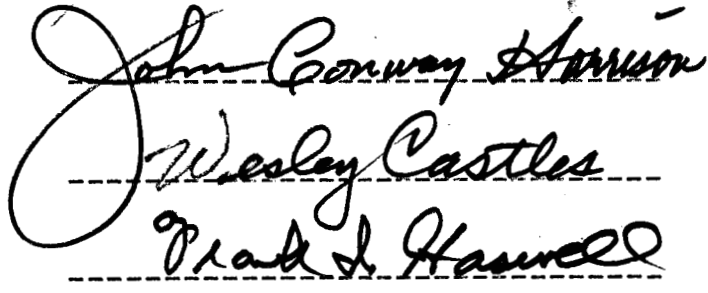 John Conway Harrison
Wesley Castles
Frank I. Haswell